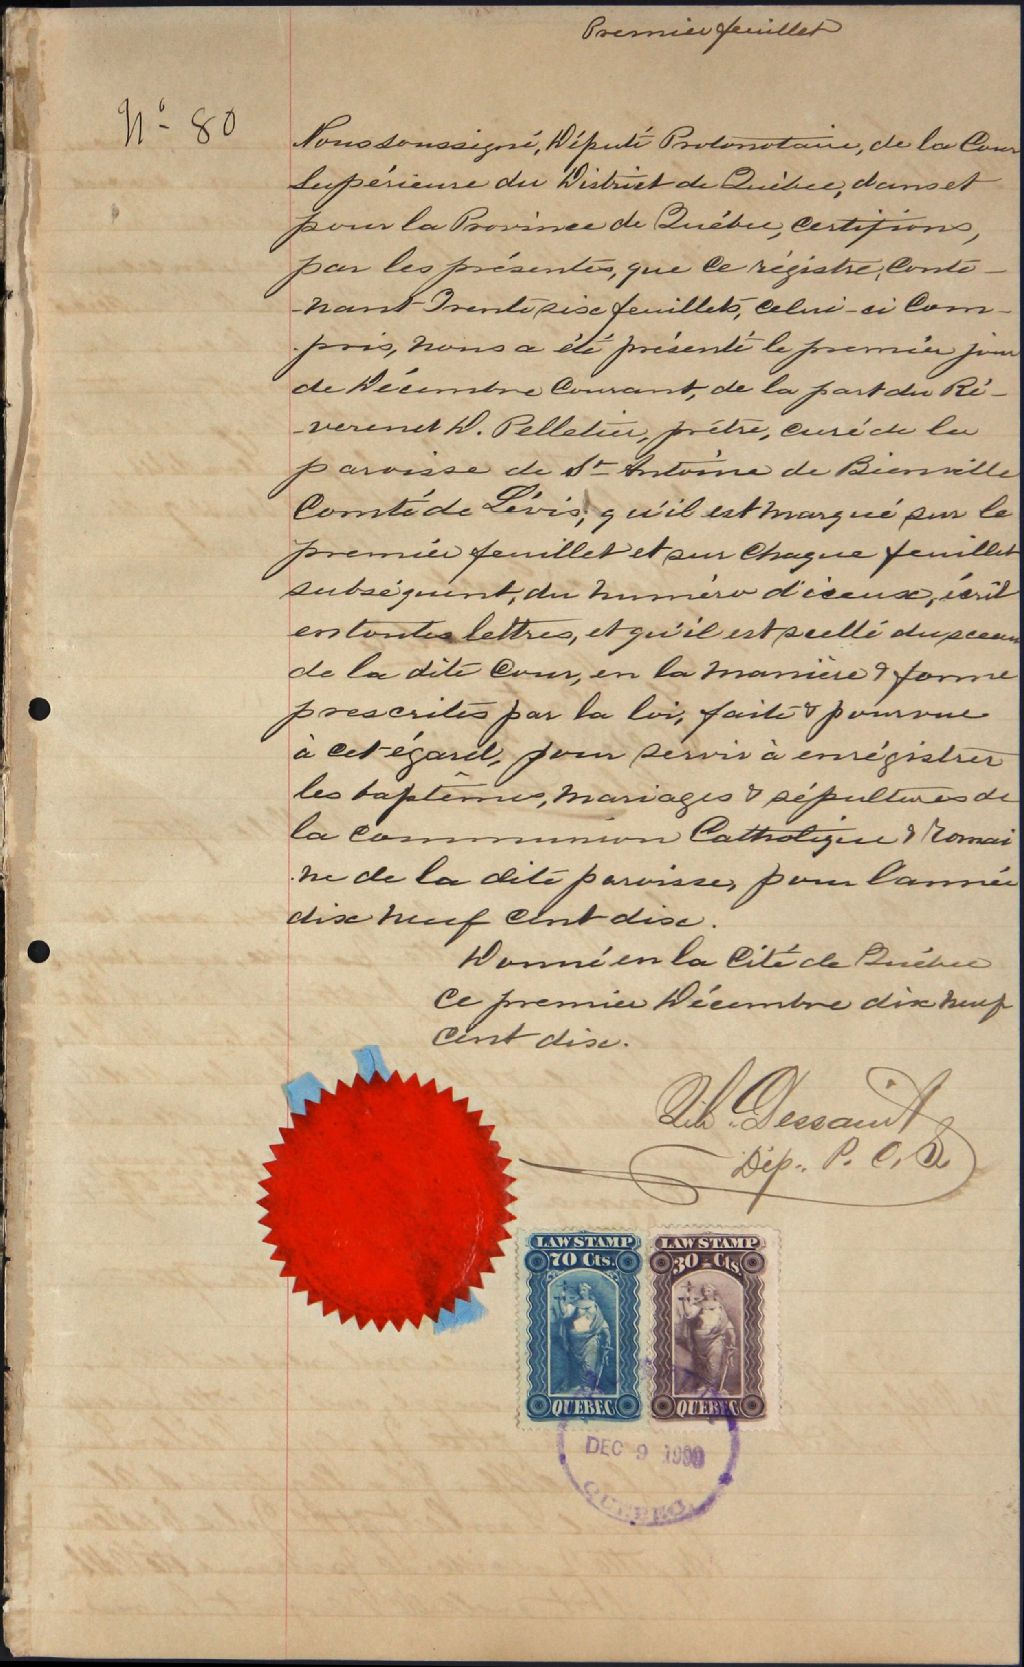 Premier feuillet
No 80
Nous soussigné, Député Protonotaire, de la Cour
Supérieure du District de Québec, dans et
pour la Province de Québec, certifions,
par les présentes, que ce régistre, conte-
-nant Trente six feuillets, celui-ci com-
-pris, nous a été présenté le premier jour
de Décembre Courant, de la part du Ré-
-verend D. Pelletier, prêtre, curé de la
paroisse de St Antoine de Bienville
Comté de Lévis; qu'il est marqué sur le
premier feuillet et sur chaque feuillet
subséquent, du numéro d'iceux, écrit
en toutes lettres, et qu'il est scellé du sceau
de la dite Cour, en la manière & forme
prescrites par la loi, faite & pourvue
à cet égard, pour servir à enrégistrer
les baptêmes, mariages & sépultures de
la communion Catholique & Romai
-ne de la dite paroisse, pour l'année
dix neuf cent dix.
Donné en la Cité de Québec
ce premier Décembre dix neuf
cent dix.
Dessaint
Dép. P. C. S.
LAW STAMP
70 Cts.
QUEBEC
LAW STAMP
30 Cts.
QUEBEC
DEC 9
QUEBEC